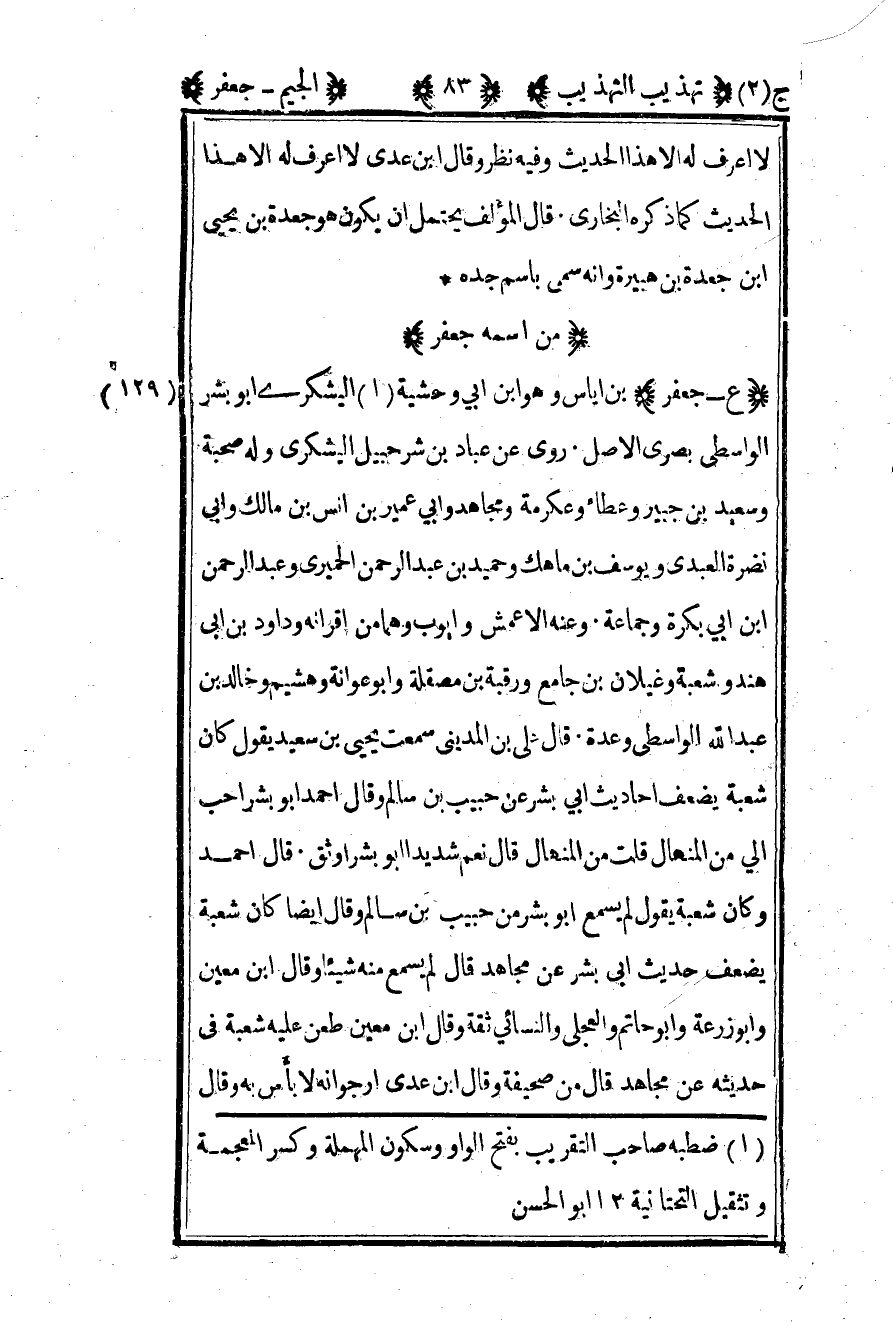 ج(٢) ﴿ تهذيب التهذيب ﴾ ﴿ ٨٣ ﴾ ﴿ الجيم - جعفر ﴾
لا اعرف له الا هذا الحديث وفيه نظر وقال ابن عدى لا اعرف له الا هذا
الحديث كما ذكره البخارى · قال المؤلف يحتمل ان يكون هو جعدة بن يحيى
ابن جعدة بن هبيرة وانه سمى باسم جده *
﴿ من اسمه جعفر ﴾
﴿ ع - جعفر ﴾ بن اياس وهو ابن ابي وحشية (١) اليشكرے ابو بشر (١٢٩)
الواسطى بصرى الاصل · روى عن عباد بن شرحبيل اليشكرى وله صحبة
وسعيد بن جبير وعطاء وعكرمة ومجاهد وابي عمير بن انس بن مالك وابي
نضرة العبدى ويوسف بن ماهك وحميد بن عبد الرحمن الحميرى وعبد الرحمن
ابن ابي بكرة وجماعة · وعنه الاعمش وايوب وهما من اقرانه وداود بن ابى
هند وشعبة وغيلان بن جامع ورقبة بن مصقلة وابو عوانة وهشيم وخالد بن
عبد الله الواسطى وعدة · قال على بن المدينى سمعت يحيى بن سعيد يقول كان
شعبة يضعف احاديث ابي بشر عن حبيب بن سالم وقال احمد ابو بشر احب
الي من المنهال قلت من المنهال قال نعم شديدا ابو بشر اوثق · قال احمد
وكان شعبة يقول لم يسمع ابو بشر من حبيب بن سالم وقال ايضا كان شعبة
يضعف حديث ابى بشر عن مجاهد قال لم يسمع منه شيئا وقال ابن معين
وابو زرعة وابو حاتم والعجلى والنسائي ثقة وقال ابن معين طعن عليه شعبة فى
حديثه عن مجاهد قال من صحيفة وقال ابن عدى ارجو انه لا بأس به وقال
(١) ضطبه صاحب التقريب بفتح الواو وسكون المهملة وكسر المعجمة
وتثقيل التحتانية ١٢ ابو الحسن